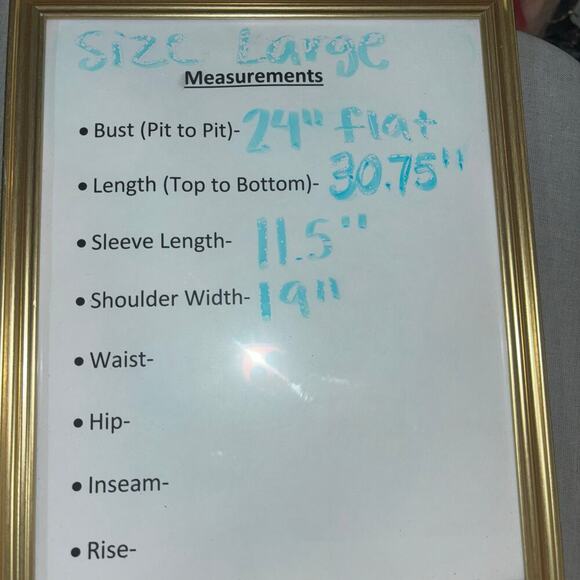 Size Large
Measurements
• Bust (Pit to Pit)- 24" flat
• Length (Top to Bottom)- 30.75"
• Sleeve Length- 11.5"
• Shoulder Width- 19"
• Waist-
• Hip-
• Inseam-
• Rise-